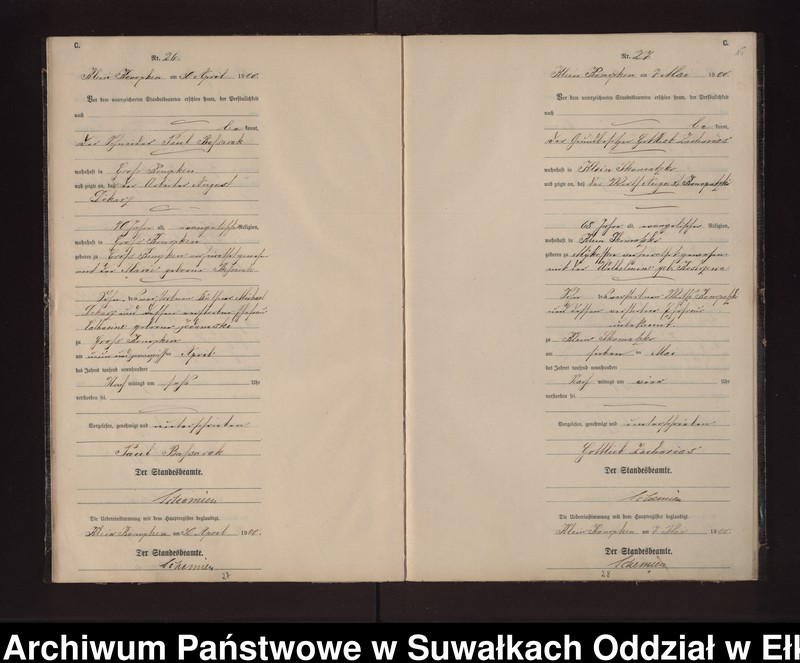 C.
Nr. 26.
Klein Konopken am 30 April 1900.
Vor dem unterzeichneten Standesbeamten erschien heute, der Persönlichkeit
nach
be kannt,
der Schneider Paul Bassarak
wohnhaft in Groß Konopken
und zeigte an, daß der Arbeiter August
70 Jahre alt, evangelischer Religion,
wohnhaft in Groß Konopken
geboren zu Groß Konopken
mit der Marie geborene
Sohn des verstorbenen Michael
und dessen verstorbenen Ehefrau
Catharine geborene
zu Groß Konopken
am neun und zwanzigsten April
des Jahres tausend neunhundert
Nach mittags um sechs Uhr
verstorben sei.
Vorgelesen, genehmigt und unterschrieben
Paul Bassarak
Der Standesbeamte.
Die Uebereinstimmung mit dem Hauptregister beglaubigt.
Klein Konopken am 30 April 1900.
Der Standesbeamte.
27
C.
Nr. 27
Klein Konopken am 7 Mai 1900.
Vor dem unterzeichneten Standesbeamten erschien heute, der Persönlichkeit
nach
be kannt,
der Grundbesitzer Gottlieb Zacharias
wohnhaft in Klein Skomatzko
und zeigte an, daß der Wirth August Konopatzki
68 Jahre alt, evangelischer Religion,
wohnhaft in Klein Skomatzko
geboren zu
mit der Wilhelmine geb.
Sohn des verstorbenen Wirth Konopatzki
und dessen verstorbene Ehefrau
unbekannt.
zu Klein Skomatzko
am sieben ten Mai
des Jahres tausend neunhundert
Nach mittags um vier Uhr
verstorben sei.
Vorgelesen, genehmigt und unterschrieben
Gottlieb Zacharias
Der Standesbeamte.
Die Uebereinstimmung mit dem Hauptregister beglaubigt.
Klein Konopken am 7 Mai 1900.
Der Standesbeamte.
28
Archiwum Państwowe w Suwałkach Oddział w Ełk